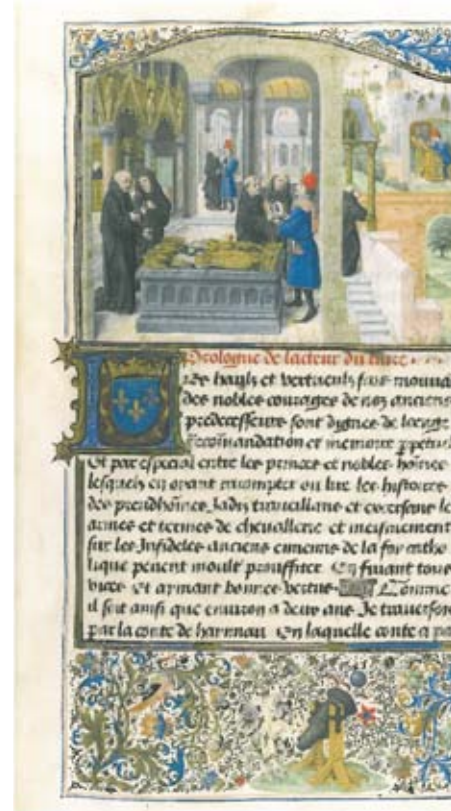 Prologue de lacteur du livre
Les haulx et vertueulx fais mouua
des nobles courages de noz anciens
predecesseurs sont dignes de loenge
Recōmandation et memoire
Et par especial entre les princes et nobles hōmes
lesquelz en oyant racompter ou lire les histoires
des preudhōmes Jadis trauaillans et exersans le
armes et termes de cheuallerie et meismement
sur les Infideles anciens ennemis de la foy catho
lique peuent moult prouffiter En fuiant tous
vices et aymant bonnes vertus Comme
il soit ainsi que enuiron a deux ans Je trauersoye
par la conte de haynnau En laquelle conte a pa